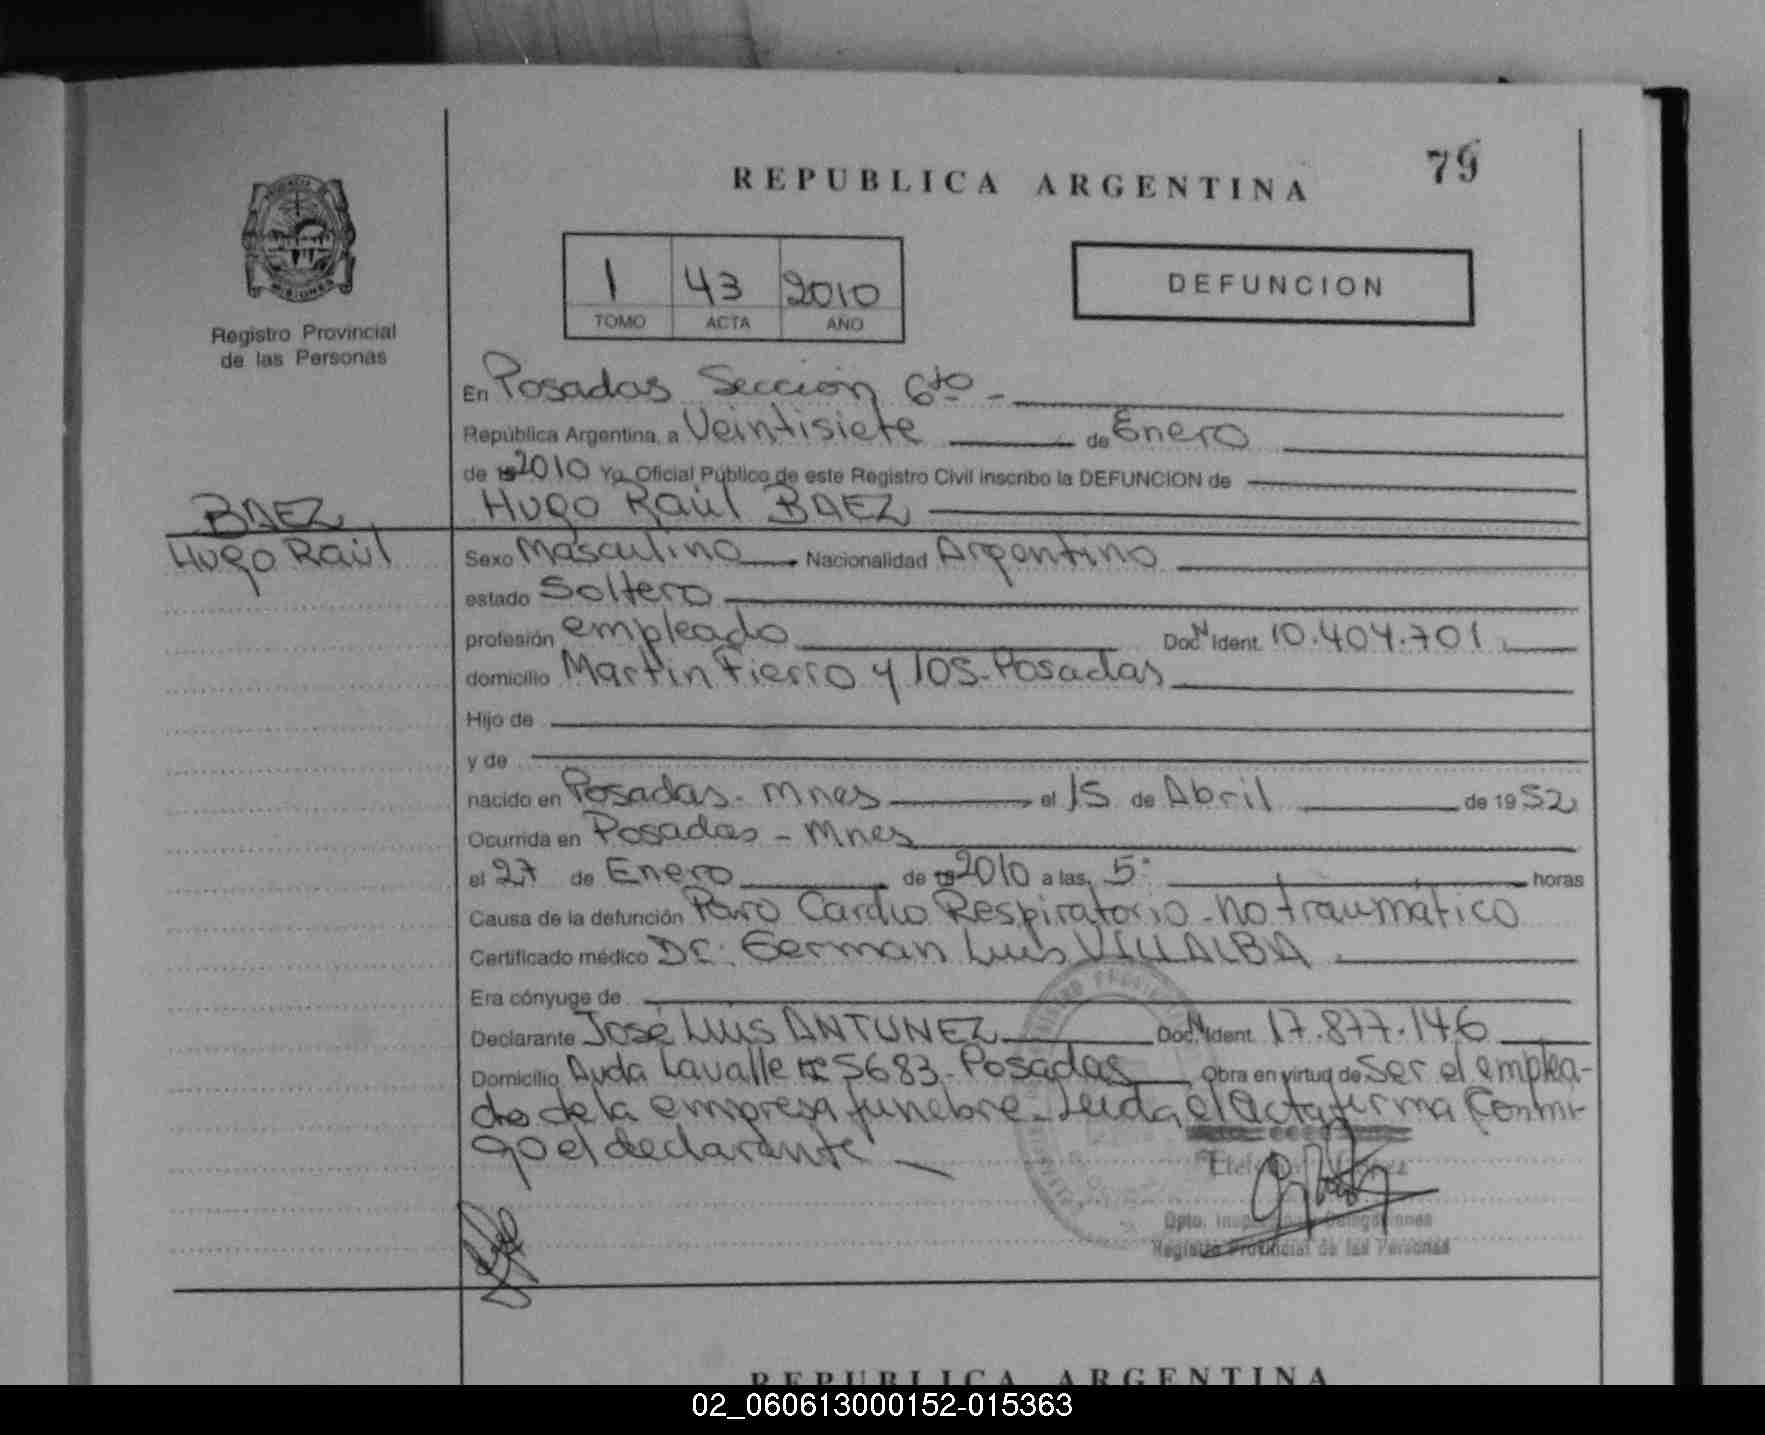 79
REPUBLICA ARGENTINA
1 43 2010
TOMO ACTA AÑO
DEFUNCION
MISIONES
Registro Provincial
de las Personas
En Posadas Sección 6to -
República Argentina, a Veintisiete de Enero
de 19 2010 Yo, Oficial Público de este Registro Civil inscribo la DEFUNCION de
BAEZ
Hugo Raúl
Hugo Raúl BAEZ
Sexo Masculino Nacionalidad Argentino
estado Soltero
profesión empleado Doc. N Ident. 10.404.701
domicilio Martin Fierro y 105-Posadas
Hijo de
y de
nacido en Posadas-Mnes el 15 de Abril de 1952
Ocurrida en Posadas - Mnes
el 27 de Enero de 19 2010 a las 5 horas
Causa de la defunción Paro Cardio Respiratorio - no traumatico
Certificado médico Dr. German Luis VILLALBA
Era cónyuge de
Declarante José Luis ANTUNEZ Doc. N Ident. 17.877.146
Domicilio Avda Lavalle 5683-Posadas Obra en virtud de Ser el emplea-
do de la empresa funebre - Leida el acta firma Conmi-
go el declarante
Dpto. Delegaciones
Registro Provincial de las Personas
REPUBLICA ARGENTINA
02_060613000152-015363